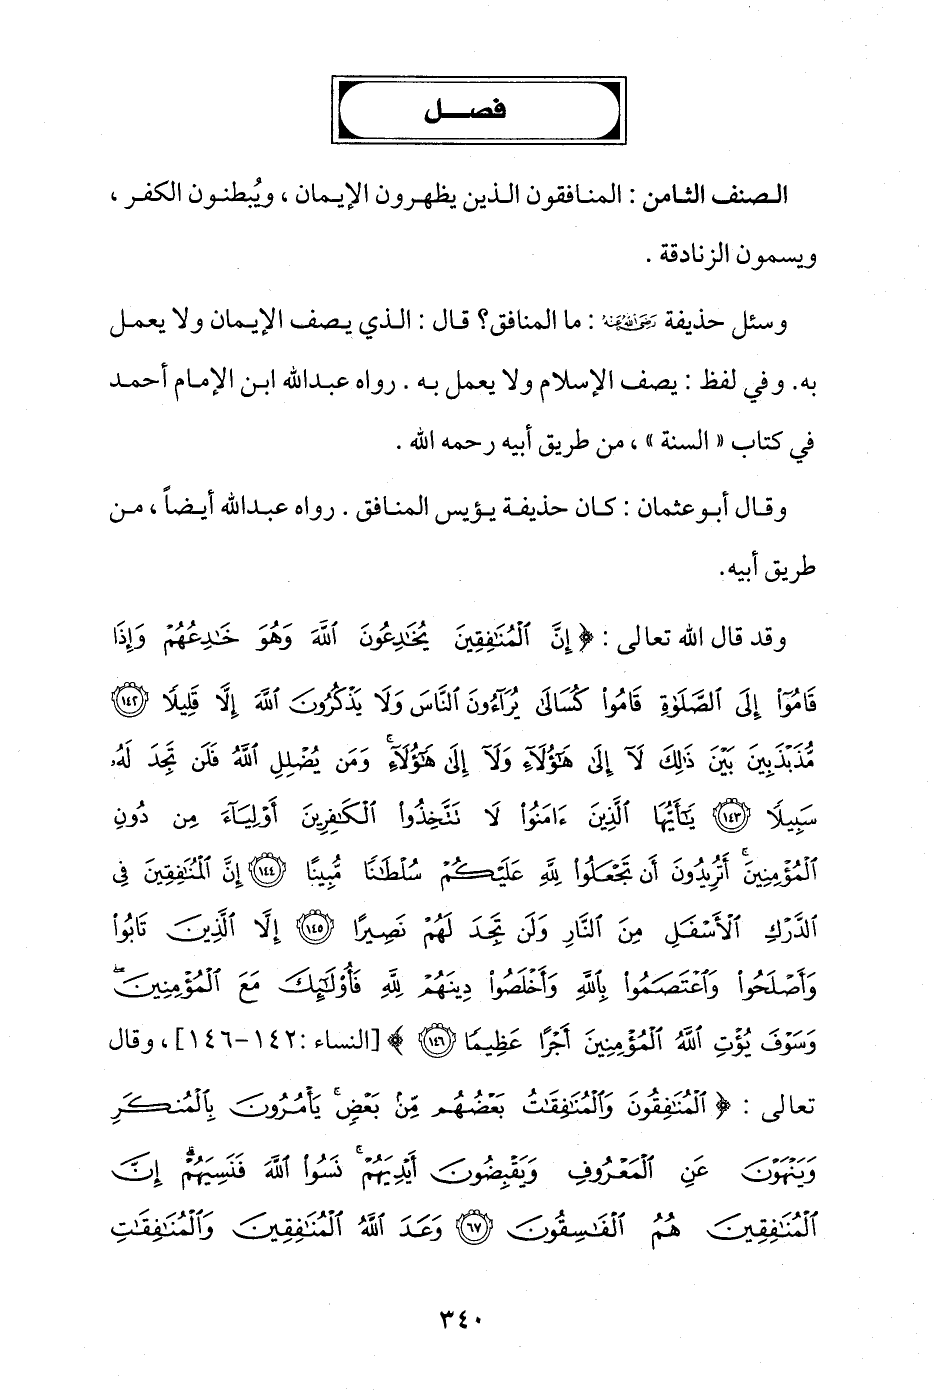 فصـــل
الـصنف الثـامن : المنـافقون الـذين يظهـرون الإيمـان ، ويُبطنـون الكفـر ،
ويسمون الزنادقة .
وسئل حذيفة رَضِيَ اللهُ عَنْهُ : ما المنافق؟ قال : الـذي يـصف الإيـمان ولا يعمـل
به. وفي لفظ : يصف الإسلام ولا يعمل بـه . رواه عبدالله ابـن الإمـام أحمـد
في كتاب « السنة » ، من طريق أبيه رحمه الله .
وقـال أبـو عثمان : كـان حذيفـة يـؤيس المنـافق . رواه عبـدالله أيـضاً ، مـن
طريق أبيه.
وقد قال الله تعالى : ﴿ إِنَّ ٱلْمُنَٰفِقِينَ يُخَٰدِعُونَ ٱللَّهَ وَهُوَ خَٰدِعُهُمْ وَإِذَا
قَامُوٓا۟ إِلَى ٱلصَّلَوٰةِ قَامُوا۟ كُسَالَىٰ يُرَآءُونَ ٱلنَّاسَ وَلَا يَذْكُرُونَ ٱللَّهَ إِلَّا قَلِيلًا ١٤٢
مُّذَبْذَبِينَ بَيْنَ ذَٰلِكَ لَآ إِلَىٰ هَٰٓؤُلَآءِ وَلَآ إِلَىٰ هَٰٓؤُلَآءِ ۚ وَمَن يُضْلِلِ ٱللَّهُ فَلَن تَجِدَ لَهُۥ
سَبِيلًا ١٤٣ يَٰٓأَيُّهَا ٱلَّذِينَ ءَامَنُوا۟ لَا تَتَّخِذُوا۟ ٱلْكَٰفِرِينَ أَوْلِيَآءَ مِن دُونِ
ٱلْمُؤْمِنِينَ ۚ أَتُرِيدُونَ أَن تَجْعَلُوا۟ لِلَّهِ عَلَيْكُمْ سُلْطَٰنًا مُّبِينًا ١٤٤ إِنَّ ٱلْمُنَٰفِقِينَ فِى
ٱلدَّرْكِ ٱلْأَسْفَلِ مِنَ ٱلنَّارِ وَلَن تَجِدَ لَهُمْ نَصِيرًا ١٤٥ إِلَّا ٱلَّذِينَ تَابُوا۟
وَأَصْلَحُوا۟ وَٱعْتَصَمُوا۟ بِٱللَّهِ وَأَخْلَصُوا۟ دِينَهُمْ لِلَّهِ فَأُو۟لَٰٓئِكَ مَعَ ٱلْمُؤْمِنِينَ ۖ
وَسَوْفَ يُؤْتِ ٱللَّهُ ٱلْمُؤْمِنِينَ أَجْرًا عَظِيمًا ١٤٦ ﴾ [النساء :١٤٢-١٤٦] ، وقال
تعالى : ﴿ ٱلْمُنَٰفِقُونَ وَٱلْمُنَٰفِقَٰتُ بَعْضُهُم مِّنۢ بَعْضٍ ۚ يَأْمُرُونَ بِٱلْمُنكَرِ
وَيَنْهَوْنَ عَنِ ٱلْمَعْرُوفِ وَيَقْبِضُونَ أَيْدِيَهُمْ ۚ نَسُوا۟ ٱللَّهَ فَنَسِيَهُمْ ۗ إِنَّ
ٱلْمُنَٰفِقِينَ هُمُ ٱلْفَٰسِقُونَ ٦٧ وَعَدَ ٱللَّهُ ٱلْمُنَٰفِقِينَ وَٱلْمُنَٰفِقَٰتِ
٣٤٠